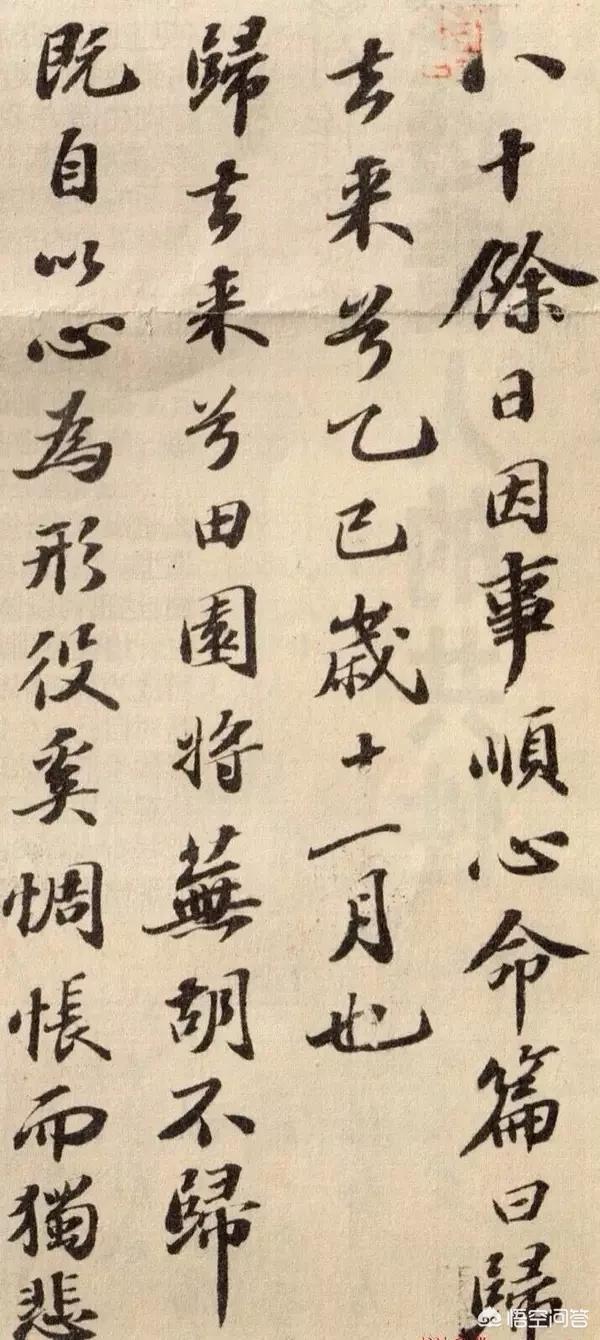 八十餘日因事順心命篇曰歸
去来兮乙巳歳十一月也
歸去来兮田園将蕪胡不歸
既自以心為形役奚惆悵而獨悲
悟空问答